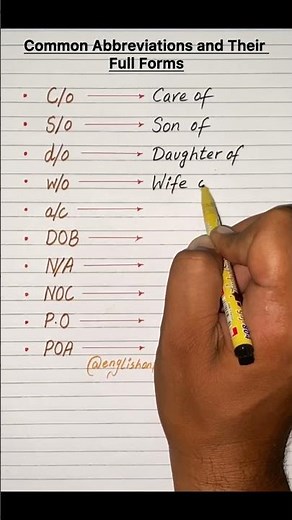 Common Abbreviations and Their
Full Forms
• C/o → Care of
• S/o → Son of
• d/o → Daughter of
• w/o → Wife o
• a/c →
• DOB →
• N/A →
• NOC →
• P.O →
• POA →